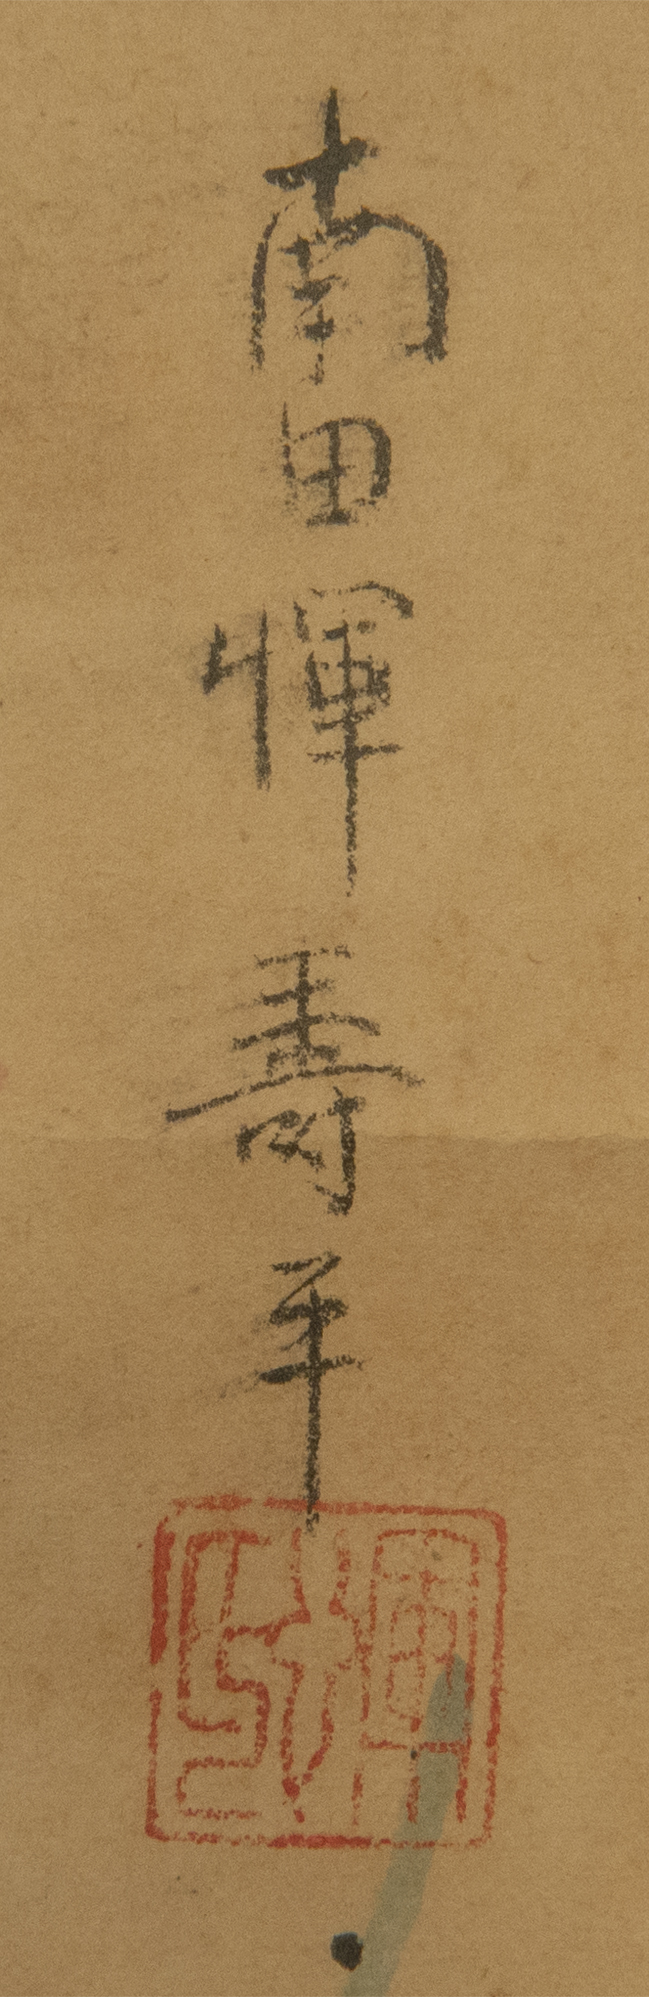 南田惲壽平